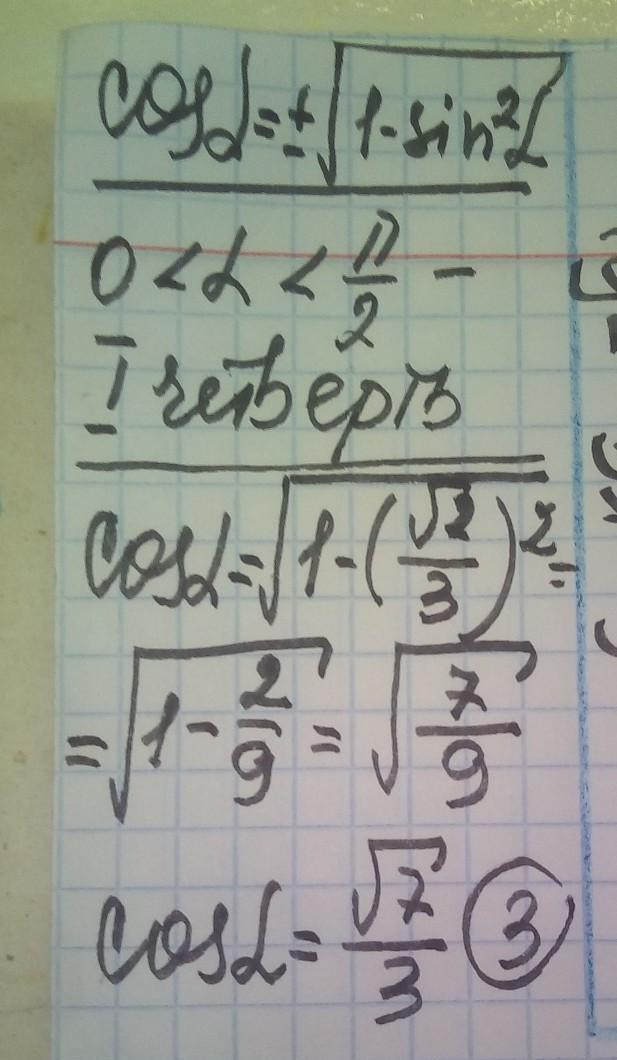 cosα = ±√(1 - sin²α)
0 < α < π/2 -
I четверть
cosα = √(1 - (√2/3)²) =
= √(1 - 2/9) = √(7/9)
cosα = √7/3 ③